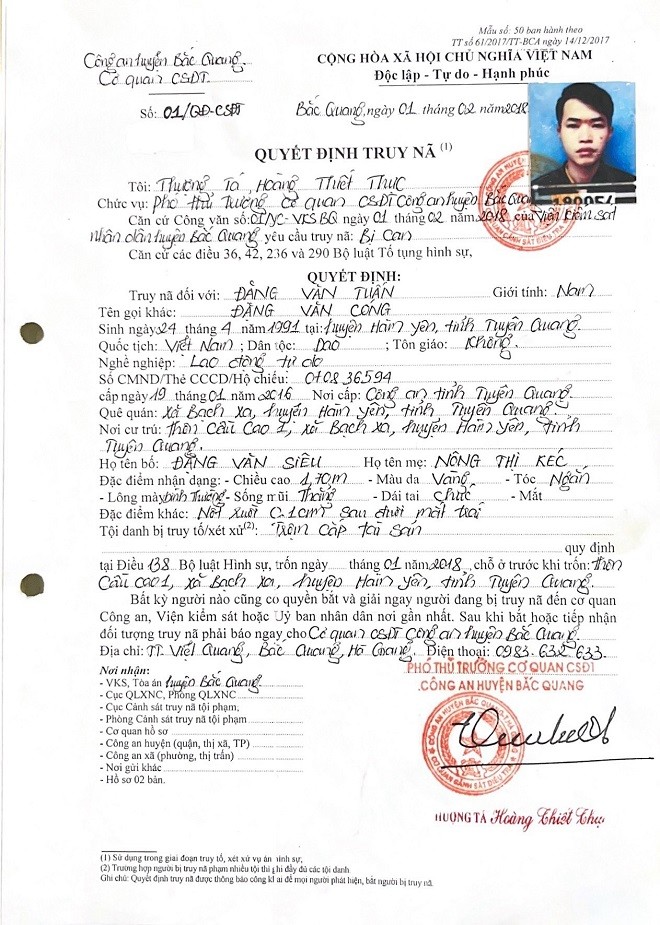 Mẫu số: 50 ban hành theo
TT số 61/2017/TT-BCA ngày 14/12/2017
Công an huyện Bắc Quang
Cơ quan CSĐT
CỘNG HÒA XÃ HỘI CHỦ NGHĨA VIỆT NAM
Độc lập - Tự do - Hạnh phúc
Số: 01/QĐ-CSĐT
Bắc Quang, ngày 01 tháng 02 năm 2018
QUYẾT ĐỊNH TRUY NÃ (1)
Tôi: Thượng Tá, Hoàng Thiết Thực
Chức vụ: Phó Thủ Trưởng Cơ quan CSĐT Công an huyện Bắc Quang
Căn cứ Công văn số: 01/VC-VKSBQ ngày 01 tháng 02 năm 2018 của Viện kiểm sát
nhân dân huyện Bắc Quang yêu cầu truy nã: Bị can
Căn cứ các điều 36, 42, 236 và 290 Bộ luật Tố tụng hình sự,
QUYẾT ĐỊNH:
Truy nã đối với: ĐẶNG VĂN TUẤN Giới tính: Nam
Tên gọi khác: ĐẶNG VĂN CÔNG
Sinh ngày 24 tháng 4 năm 1991 tại: huyện Hàm Yên, tỉnh Tuyên Quang.
Quốc tịch: Việt Nam; Dân tộc: Dao; Tôn giáo: Không.
Nghề nghiệp: Lao động tự do
Số CMND/Thẻ CCCD/Hộ chiếu: 070836594
cấp ngày 19 tháng 01 năm 2016 Nơi cấp: Công an tỉnh Tuyên Quang.
Quê quán: xã Bạch Xa, huyện Hàm Yên, tỉnh Tuyên Quang
Nơi cư trú: thôn Cầu Cao 1, xã Bạch Xa, huyện Hàm Yên, tỉnh
Tuyên Quang.
Họ tên bố: ĐẶNG VĂN SIỂU Họ tên mẹ: NÔNG THỊ KÉC
Đặc điểm nhận dạng: - Chiều cao 1,70m - Màu da Vàng - Tóc Ngắn
- Lông mày bình thường - Sống mũi Thẳng - Dái tai chúc - Mắt
Đặc điểm khác: Nốt ruồi C.1cm sau đuôi mắt trái
Tội danh bị truy tố/xét xử(2): Trộm cắp tài sản
quy định
tại Điều 138 Bộ luật Hình sự, trốn ngày tháng 01 năm 2018, chỗ ở trước khi trốn: thôn
Cầu Cao 1, xã Bạch Xa, huyện Hàm Yên, tỉnh Tuyên Quang.
Bất kỳ người nào cũng có quyền bắt và giải ngay người đang bị truy nã đến cơ quan
Công an, Viện kiểm sát hoặc Uỷ ban nhân dân nơi gần nhất. Sau khi bắt hoặc tiếp nhận
đối tượng truy nã phải báo ngay cho Cơ quan CSĐT Công an huyện Bắc Quang.
Địa chỉ: TT. Việt Quang, Bắc Quang, Hà Giang. Điện thoại: 0983.632.633.
PHÓ THỦ TRƯỞNG CƠ QUAN CSĐT
CÔNG AN HUYỆN BẮC QUANG
Nơi nhận:
- VKS, Tòa án huyện Bắc Quang
- Cục QLXNC, Phòng QLXNC
- Cục Cảnh sát truy nã tội phạm,
- Phòng Cảnh sát truy nã tội phạm
- Cơ quan hồ sơ
- Công an huyện (quận, thị xã, TP)
- Công an xã (phường, thị trấn)
- Nơi gửi khác
- Hồ sơ 02 bản.
HƯỢNG TÁ Hoàng Thiết Thực
(1) Sử dụng trong giai đoạn truy tố, xét xử vụ án hình sự;
(2) Trường hợp người bị truy nã phạm nhiều tội thì ghi đầy đủ các tội danh
Ghi chú: Quyết định truy nã được thông báo công khai để mọi người phát hiện, bắt người bị truy nã.